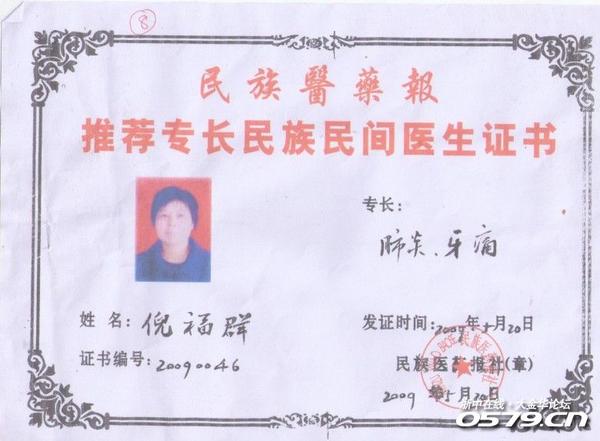 8
民族醫藥報
推荐专长民族民间医生证书
专长：
肺炎、牙痛
姓名：倪福群
发证时间：2009年 月20日
证书编号：20090046
民族医药报社(章)
2009年 月20日
浙中在线·大金华论坛
0579.CN